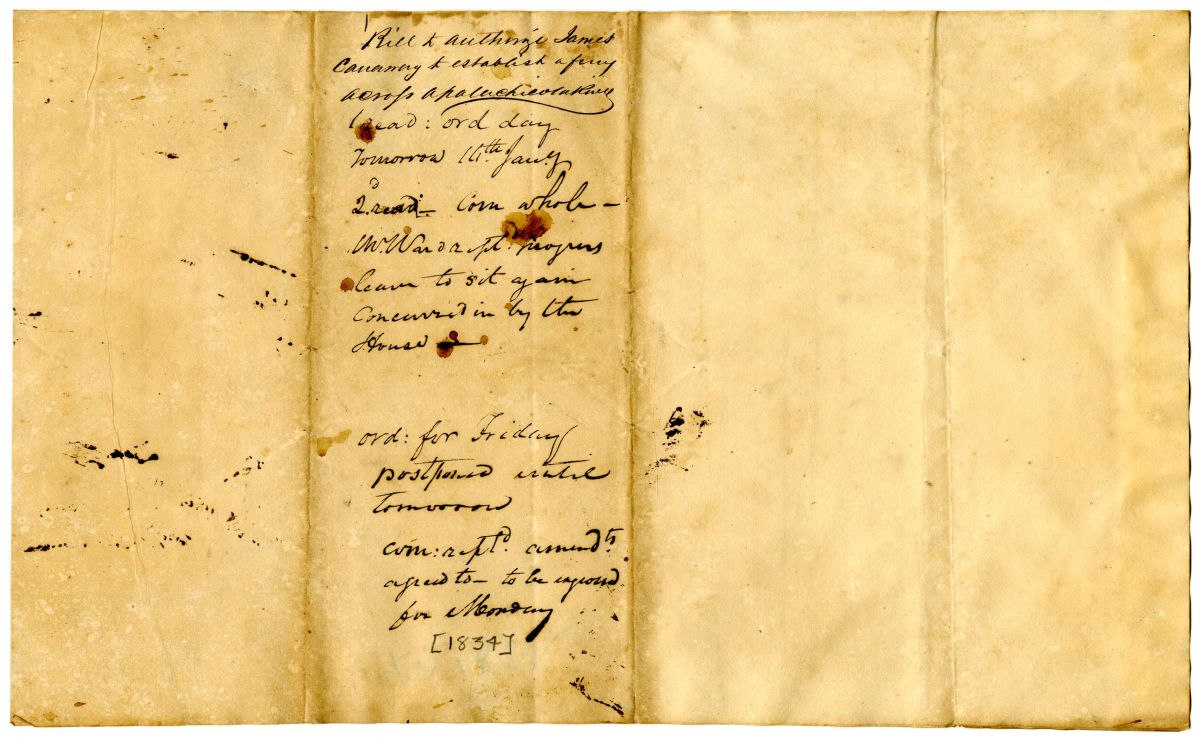 Bill to authorize James
Canaway to establish a ferry
across Apalachicola River
1 read: ord day
Tomorrow 14th Jany
2d read – Com whole –
Mr. Ward rept. progress
leave to sit again
Concurred in by the
House –
ord: for Friday
postponed until
tomorrow
com: reptd. amendts.
agreed to – to be ingrossd
for Monday
[1834]